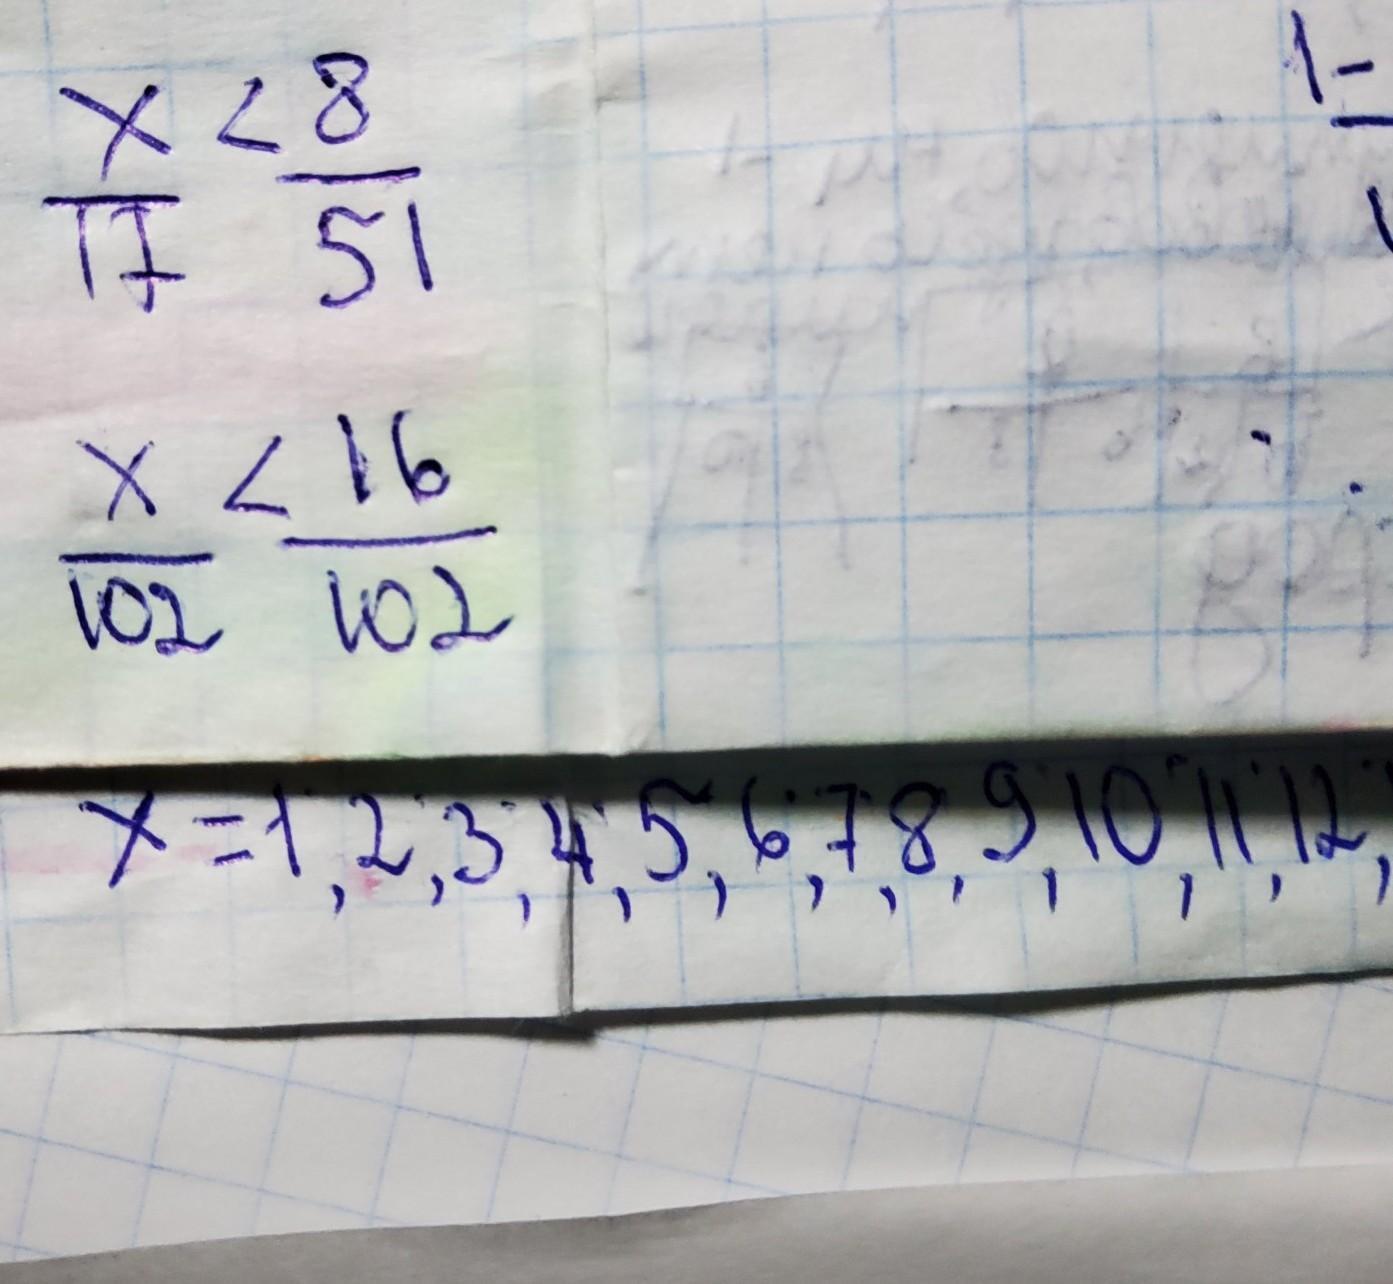 x/17 < 8/51
1-
x/102 < 16/102
x = 1, 2, 3, 4, 5, 6, 7, 8, 9, 10, 11, 12,